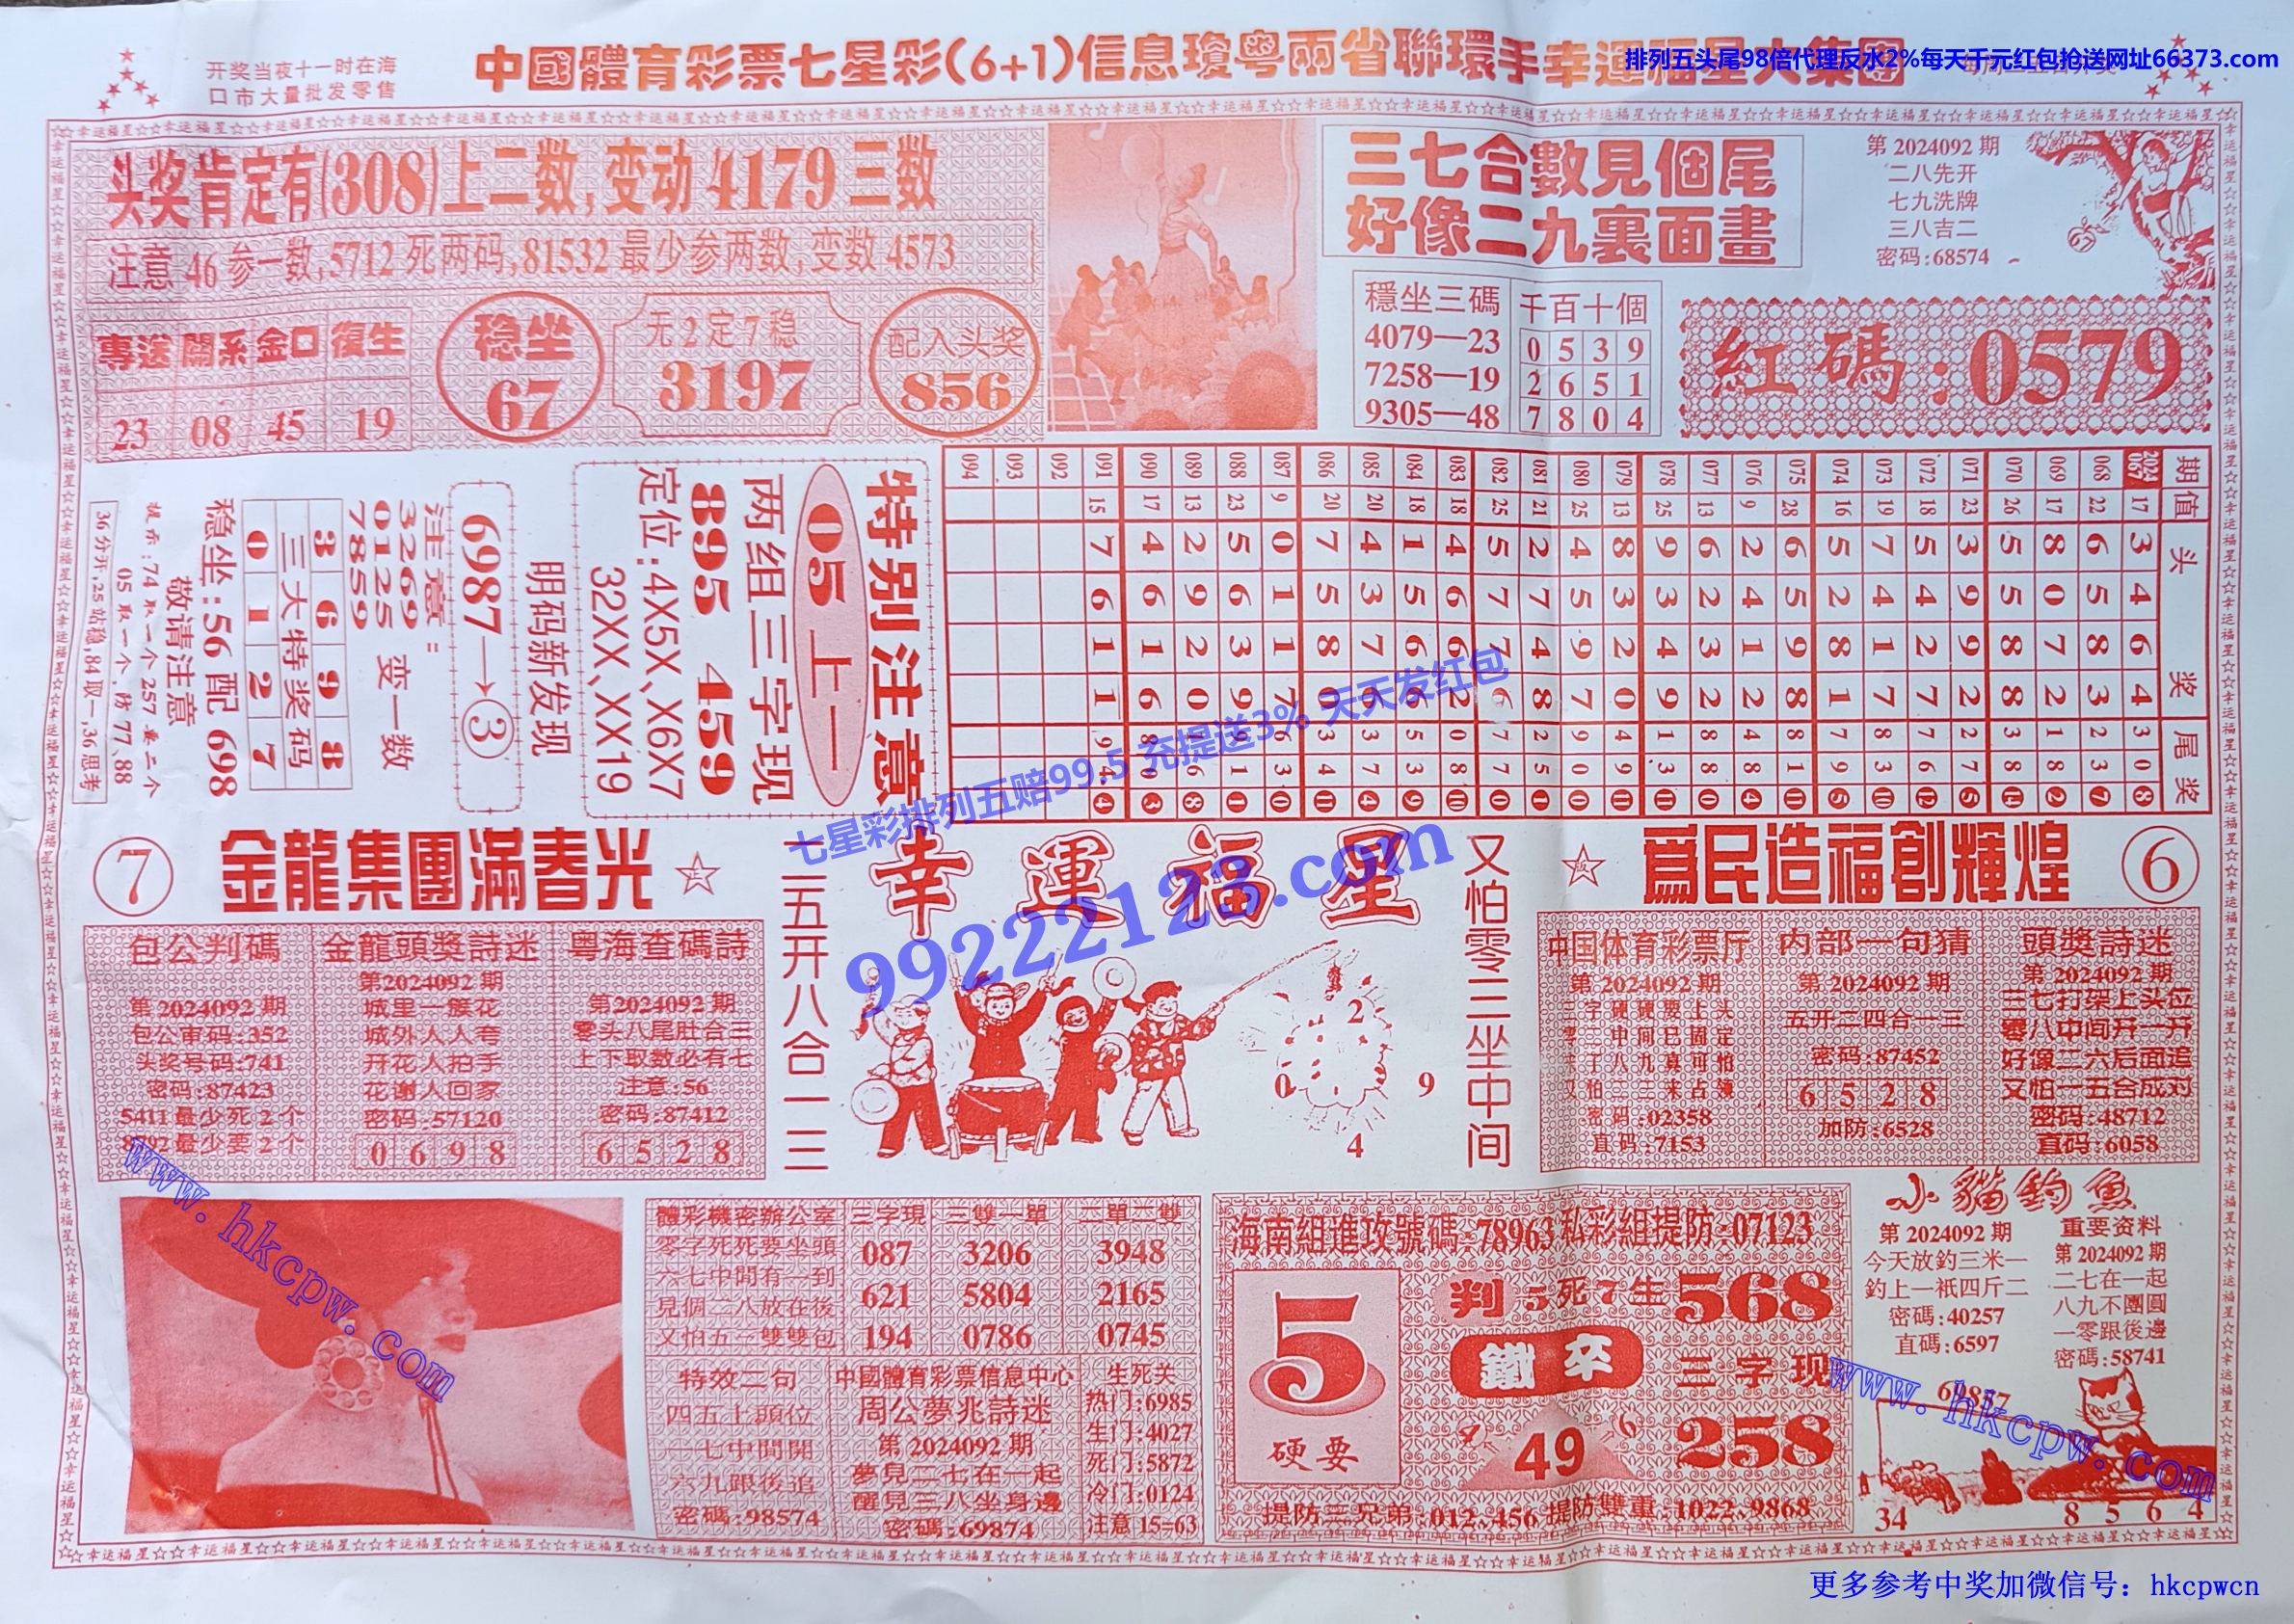 开奖当夜十一时在海
口市大量批发零售
中國體育彩票七星彩(6+1)信息瓊粤兩省聯環手幸運福星大集團
排列五头尾98倍代理反水2%每天千元红包抢送网址66373.com
头奖肯定有(308)上二数,变动4179三数
注意46参一数,5712死两码,81532最少参两数,变数4573
專送 關系 金口 復生
23 08 45 19
稳坐
67
无2定7稳
3197
配入头奖
856
三七合數見個尾
好像二九裏面畫
第2024092期
二八先开
七九洗牌
三八吉二
密码:68574
穩坐三碼
4079—23
7258—19
9305—48
千百十個
0 5 3 9
2 6 5 1
7 8 0 4
紅碼:0579
特别注意
05上一
两组三字现
895 459
定位:4X5X、X6X7
32XX、XX19
明码新发现
6987→③
注意:
3269
0125 变一数
7859
3 6 9 8
三大特奖码
0 1 2 7
稳坐:56配698
敬请注意
提示:74取一个257要二个
05取一个防77、88
36分开,25站稳,84取一,36思考
期 值 头 奖 尾 奖
2024
067 17 3 4 6 4 3 0 8
068 22 6 5 8 3 2 3 7
069 17 8 0 7 2 1 8 2
070 26 5 5 8 8 3 8 14
071 23 3 9 9 2 2 7 5
072 18 5 4 2 7 7 6 12
073 19 7 4 1 7 8 3 10
074 16 5 2 8 1 7 9 5
075 28 6 5 9 8 8 1 11
076 9 2 4 1 2 4 8 4
077 13 6 2 3 2 8 8 0
078 25 9 3 4 9 1 3 11
079 13 8 3 2 0 4 9 11
080 25 4 5 9 7 9 0 0
081 21 2 7 4 8 2 5 1
082 25 5 7 7 6 7 7 0
083 18 4 6 6 2 0 8 10
084 18 1 5 6 6 5 3 9
085 20 4 3 7 6 3 7 4
086 20 7 5 8 0 3 4 11
087 9 0 1 1 7 6 3 0
088 23 5 6 3 9 9 1 1
089 13 2 9 2 0 1 6 8
090 17 4 6 1 6 8 0 3
091 15 7 6 1 1 9 4 4
092
093
094
七星彩排列五赔99.5 充提送3% 天天发红包
99222123.com
⑦
金龍集團滿春光
幸運福星
爲民造福創輝煌
⑥
二五开八合一三
又怕零三坐中间
包公判碼
第2024092期
包公审码:352
头奖号码:741
密码:87423
5411最少死2个
8792最少要2个
金龍頭獎詩迷
第2024092期
城里一簇花
城外人人夸
开花人拍手
花谢人回家
密码:57120
0 6 9 8
粤海查碼詩
第2024092期
零头八尾肚合三
上下取数必有七
注意:56
密码:87412
6 5 2 8
2
0 9
4
中国体育彩票厅
第2024092期
三字硬硬要上头
零二中间已固定
六了八九真可怕
又怕一三来占领
密码:02358
直码:7153
内部一句猜
第2024092期
五开二四合一三
密码:87452
6 5 2 8
加防:6528
頭獎詩迷
第2024092期
三七打架上头位
零八中间开一开
好像二六后面追
又怕一五合成对
密码:48712
直码:6058
www.hkcpw.com
體彩機密辦公室
零二死死要坐頭
六七中間有一到
見個二八放在後
又怕五一雙雙包
三字現
087
621
194
三雙一單
3206
5804
0786
二單二雙
3948
2165
0745
特效二句
四五上頭位
一七中間開
六九跟後追
密碼:98574
中國體育彩票信息中心
周公夢兆詩迷
第2024092期
夢見二七在一起
醒見三八坐身邊
密碼:69874
生死关
热门:6985
生门:4027
死门:5872
冷门:0124
注意15=63
海南組進攻號碼:78963私彩組提防:07123
5
硬要
判5死7生568
鐵卒
三字现
49
6
258
提防三兄弟:012、456提防雙重:1022、9868
小貓釣魚
第2024092期
今天放釣三米一
釣上一衹四斤二
密碼:40257
直碼:6597
重要资料
第2024092期
二七在一起
八九不團圓
一零跟後邊
密碼:58741
69857
34
8 5 6 4
www.hkcpw.com
更多参考中奖加微信号: hkcpwcn